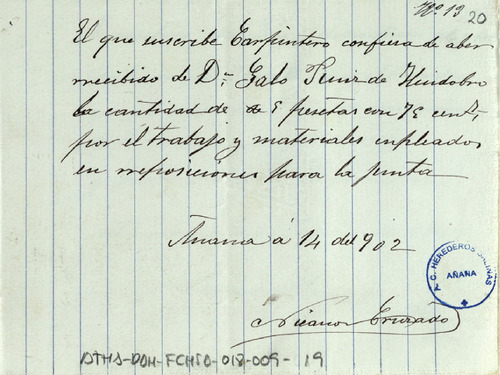 Nº 13
20
El que suscribe Carpintero confiesa de aber
recibido de Dn Galo Ruiz de Huidobro
la cantidad de 5 pesetas con 75 cents
por el trabajo y materiales enpleados
en reposiciones para la junta
Anana á 14 del 902
C. HEREDEROS SALINAS
AÑANA
Nicanor
ATHA-DAH-FCHSA-018-009-19